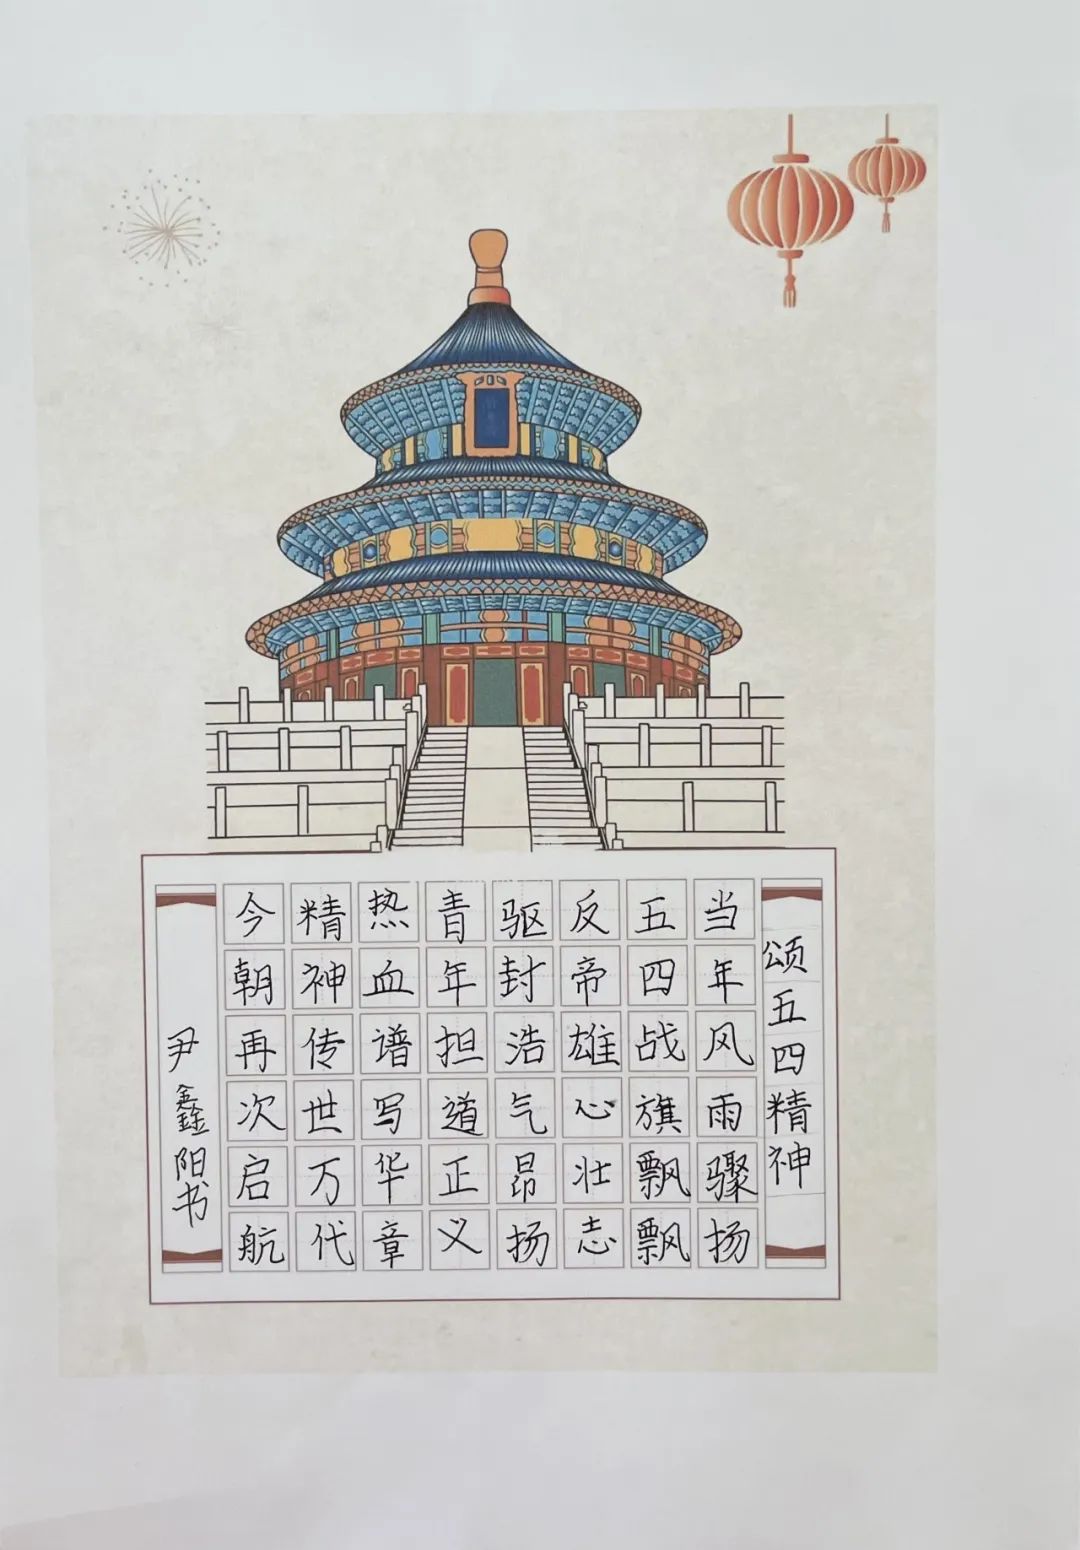 颂五四精神
当年风雨骤扬
五四战旗飘飘
反帝雄心壮志
驱封浩气昂扬
青年担道正义
热血谱写华章
精神传世万代
今朝再次启航
尹鑫阳书